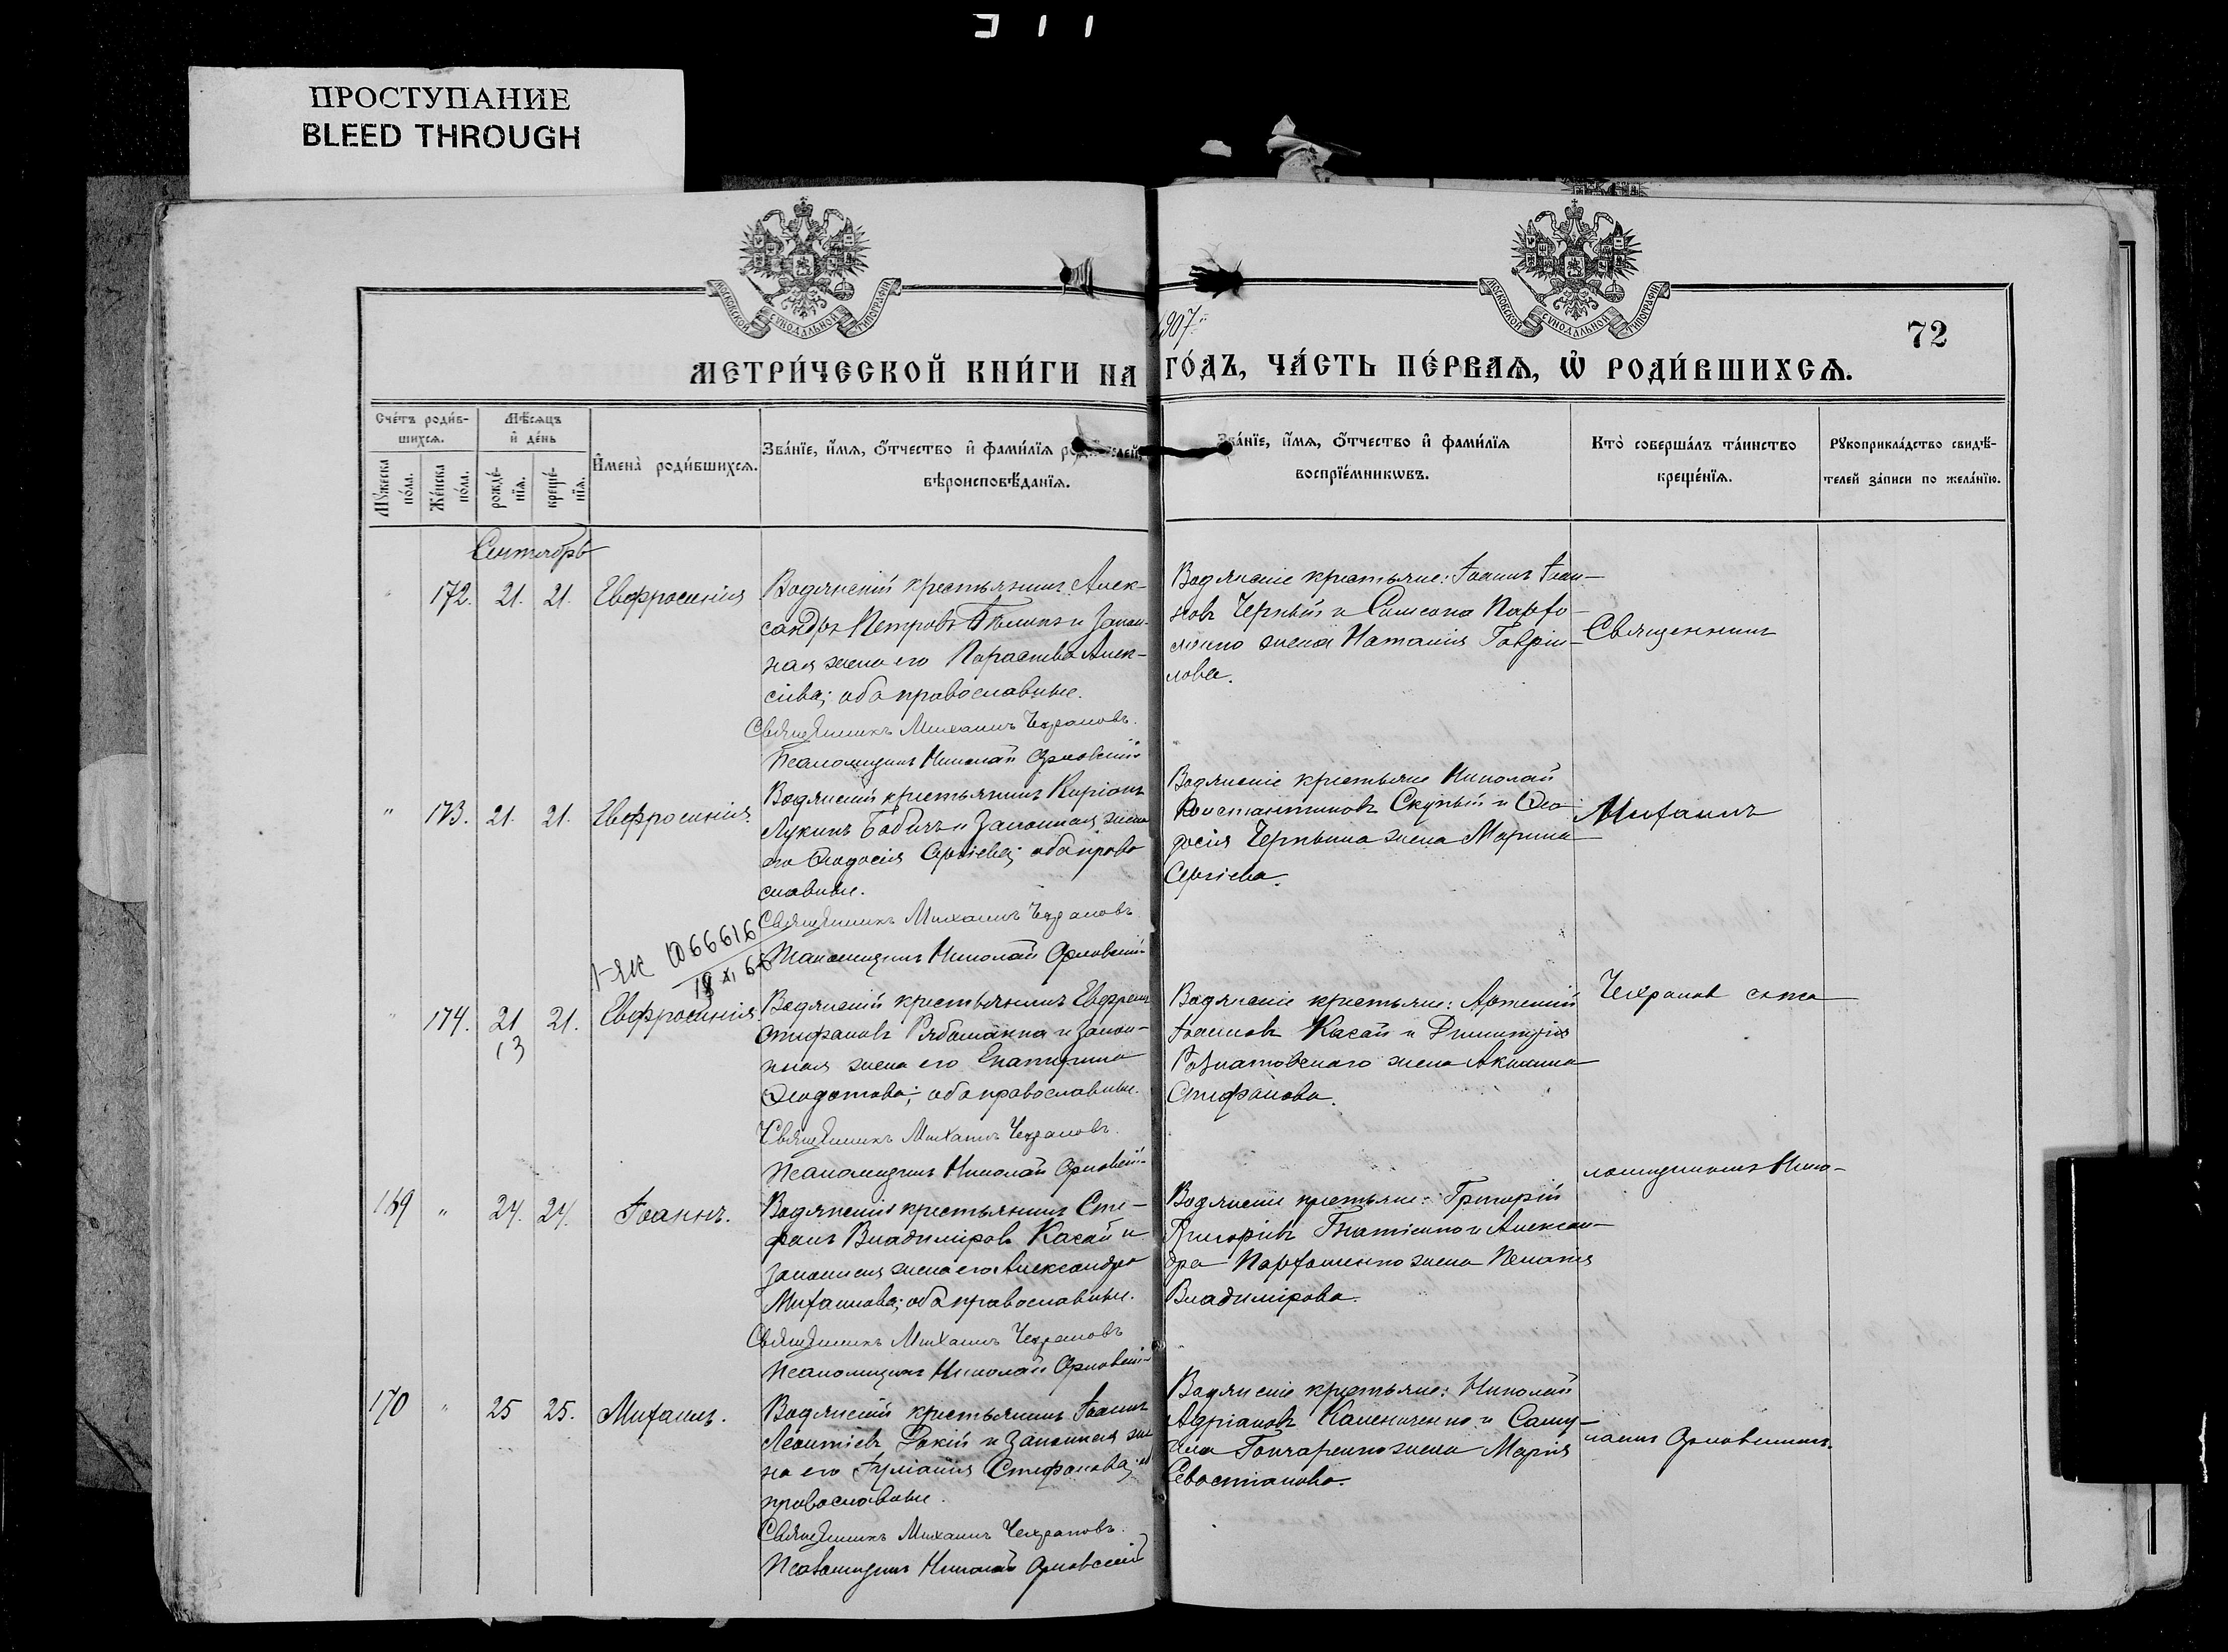 ПРОСТУПАНИЕ
BLEED THROUGH
МОСКОВСКОЙ СѴНОДАЛЬНОЙ ТИПОГРАФІИ
МОСКОВСКОЙ СѴНОДАЛЬНОЙ ТИПОГРАФІИ
1907
72
МЕТРИ́ЧЕСКОЙ КНИ́ГИ НА ГО́ДЪ, ЧА́СТЬ ПЕ́РВАѦ, Ѡ РОДИ́ВШИХСѦ.
Сче́тъ роди́в-
шихсѧ.
Мꙋ́жеска по́ла.
Же́нска по́ла.
Мѣ́сѧцъ
и҆ де́нь
рожде́-
нїѧ.
креще́-
нїѧ.
И҆мена̀ роди́вшихсѧ.
Зва́нїе, и҆́мѧ, ѻ҆́тчество и҆ фами́лїѧ
вѣроисповѣ́данїѧ.
Зва́нїе, и҆́мѧ, ѻ҆́тчество и҆ фами́лїѧ
воспрїе́мникѡвъ.
Кто̀ соверша́лъ та́инство
креще́нїѧ.
Рꙋкоприкла́дство свидѣ́-
телей за́писи по жела́нїю.
Сентябрь
172. 21. 21. Евфросинія
Водянскій крестьянинъ Алек-
сандръ Петровъ Бѣликъ и закон-
ная жена его Параскева Алек-
сіева; оба православные.
Священникъ Михаилъ Чехрановъ.
Псаломщикъ Николай Орловскій
Водянскіе крестьяне: Іоаннъ Іоан-
новъ Черный и Самсона Парфо-
менко жена Наталія Гаврии-
лова.
Священникъ
" 173. 21. 21. Евфросинія.
Водянскій крестьянинъ Киріонъ
Лукинъ Бабичъ и законная жена
его Ѳеодосія Сергіева; оба право
славные.
Священникъ Михаилъ Чехрановъ
Псаломщикъ Николай Орловскій
Водянскіе крестьяне Николай
Константиновъ Скупый и Ѳео
досія Чернышa жена Марина
Сергіева.
Михаилъ
I-ЯК 1066616
18 XI 66
" 174. 21 21. Евфросинія.
13
Водянскій крестьянинъ Евфремъ
Стефановъ Рябошапка и закон-
ная жена его Екатерина
Ѳеодотова; оба православные.
Священникъ Михаилъ Чехрановъ.
Псаломщикъ Николай Орловскій
Водянскіе крестьяне: Артемій
Іоанновъ Касай и Димитрія
жена Акилина
Стефанова.
Чехрановъ съ пса
169 " 24. 24. Іоаннъ.
Водянскій крестьянинъ Сте-
фанъ Владиміровъ Касай и
законная жена его Александра
Михаилова; оба православные.
Священникъ Михаилъ Чехрановъ
Псаломщикъ Николай Орловскій
Водянскіе крестьяне: Григорій
Григорьевъ Гнатенко и Алексан-
дра Парфоменко жена Пелагія
Владимірова.
ломщикомъ Нико-
170 " 25 25. Михаилъ.
Водянскій крестьянинъ Іоаннъ
Леонтіевъ и законная же
на его Іуліанія Стефанова;
православные.
Священникъ Михаилъ Чехрановъ.
Псаломщикъ Николай Орловскій
Водянскіе крестьяне: Николай
Адріановъ Калениченко и Саму-
ила Гончаренко жена Марія
Севостіанова.
лаемъ Орловскимъ.